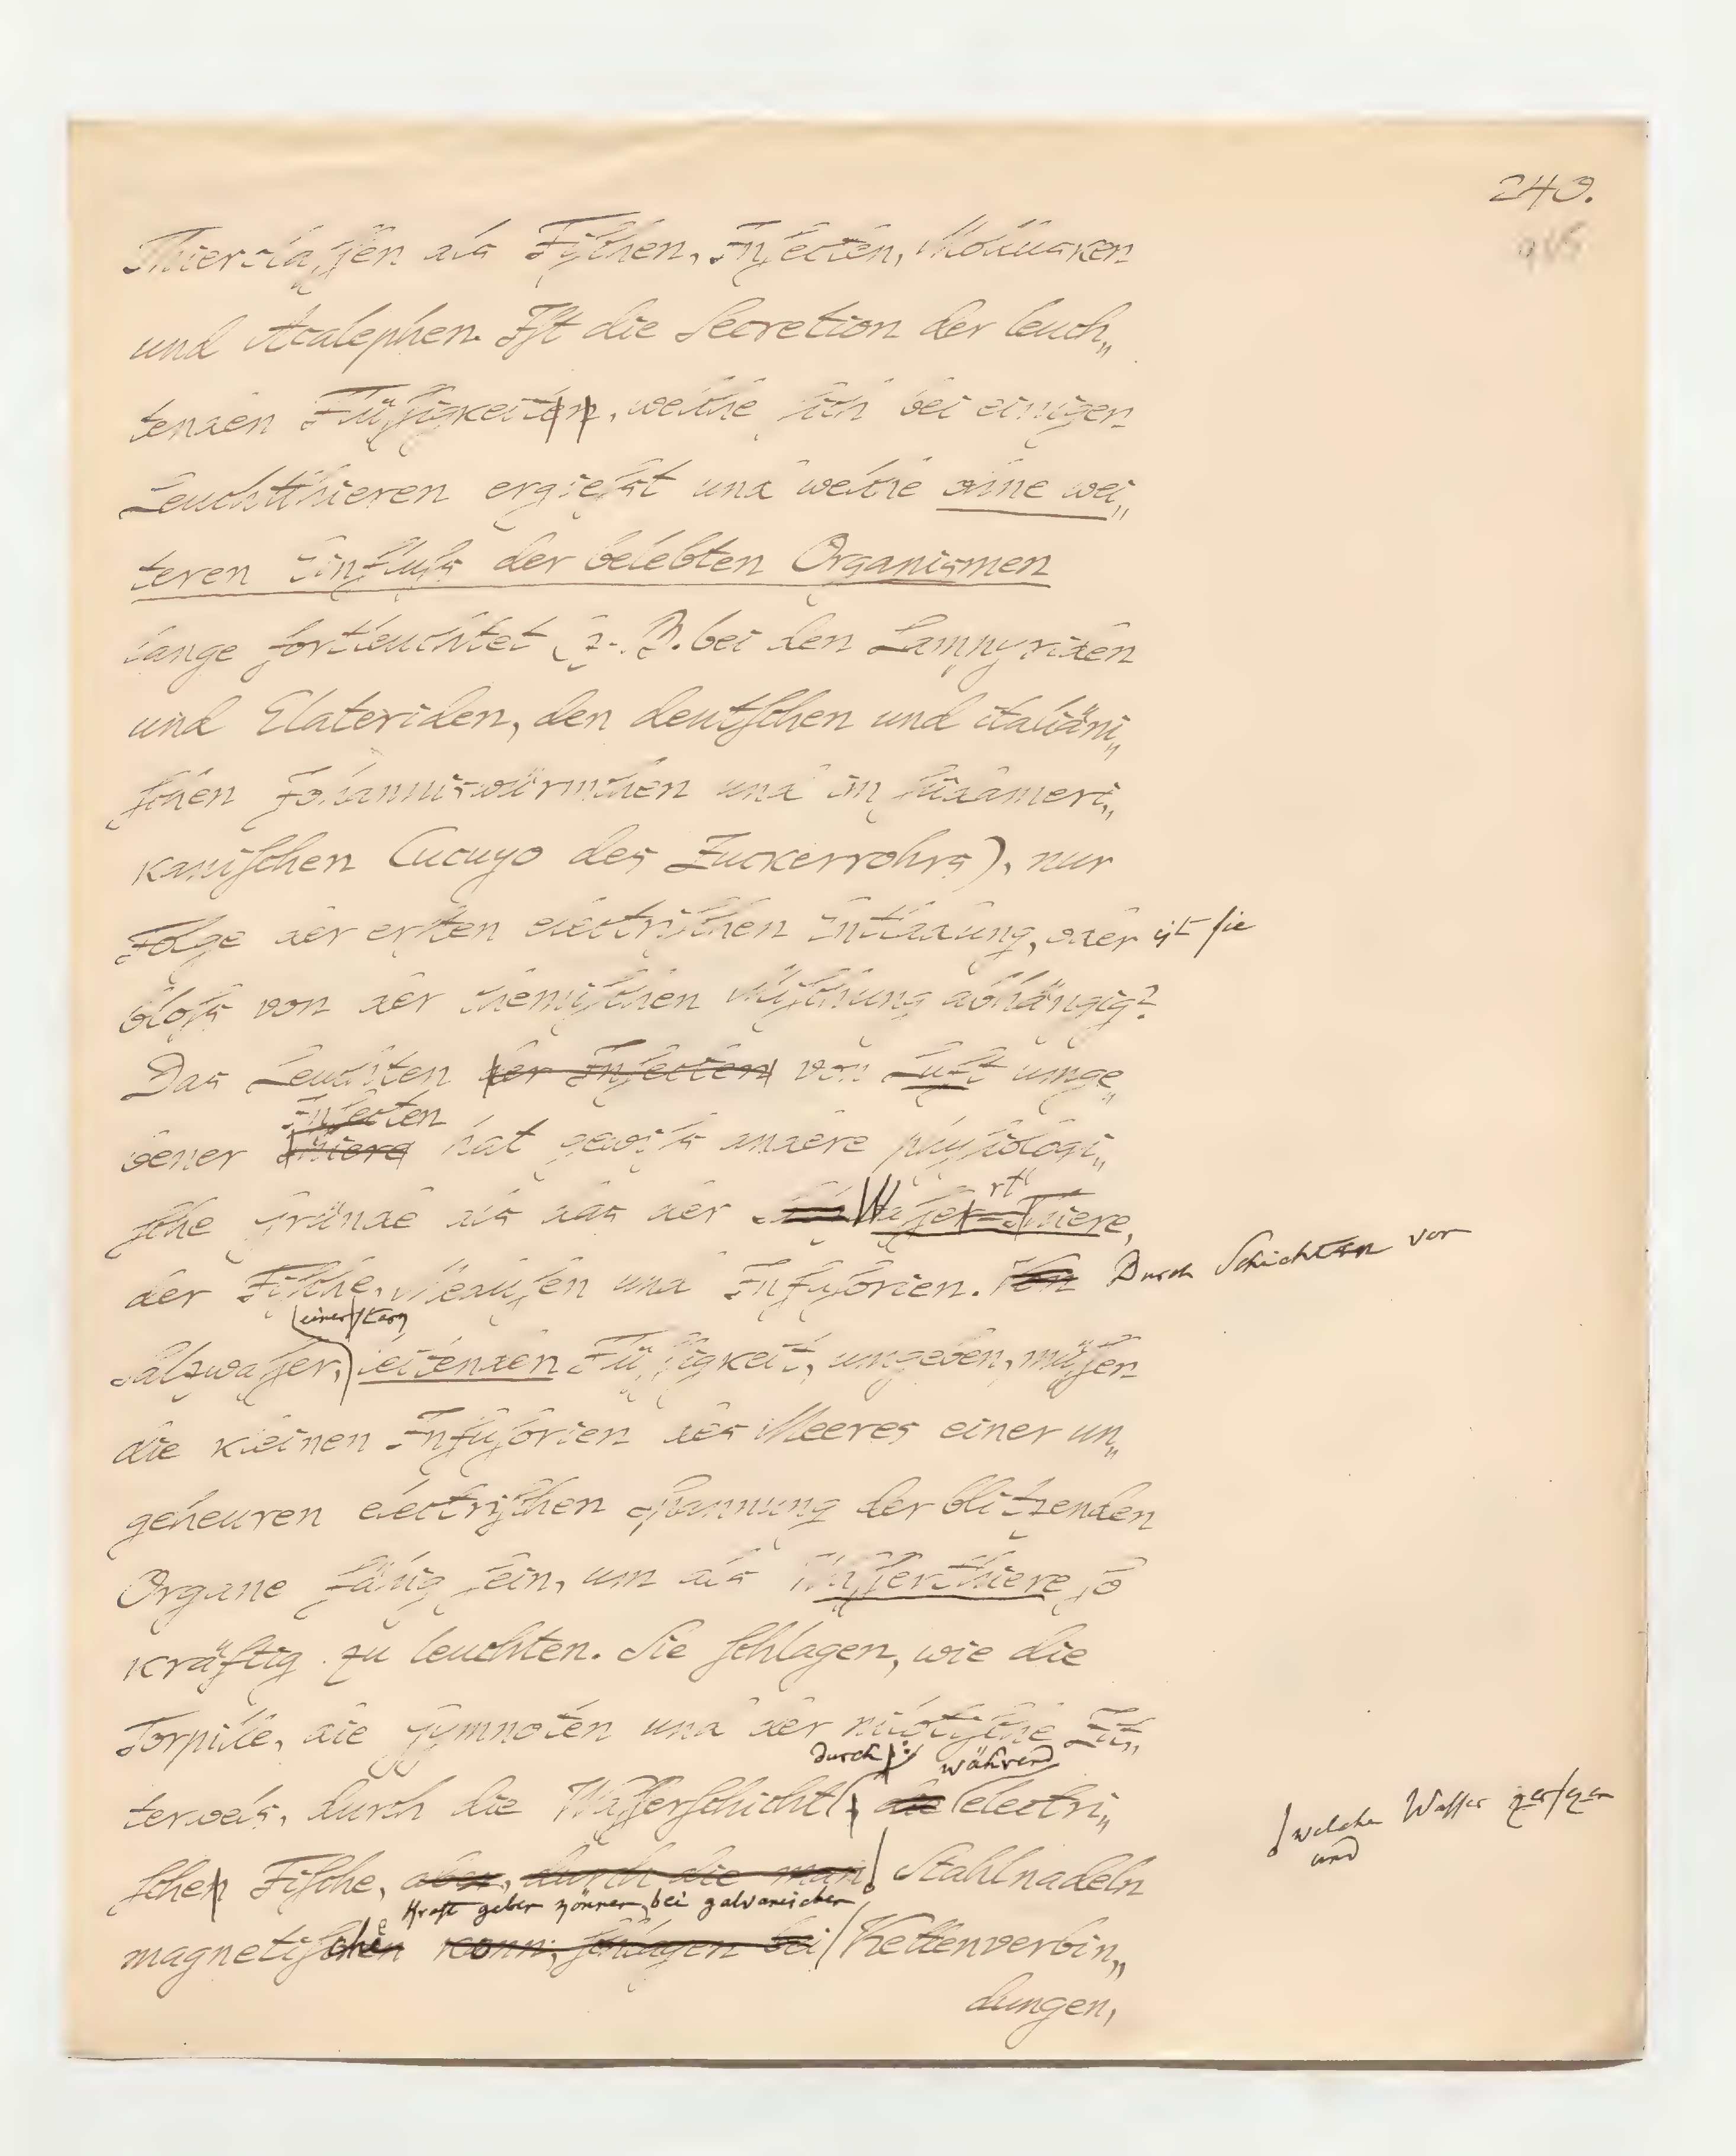 240.
Thierclaſſen als Fiſchen, Inſecten, Mollusken
und Acalephen. Iſt die Secretion der leuch„
tenden Flüſſigkeiten, welche ſich bei einigen
Leuchtthieren ergieſst und welche ohne wei„
teren Einfluſs der belebten Organismen
lange fortleuchtet (z. B. bei den Lampyriden
und Elateriden, den deutſchen und italiäni„
ſchen Johanniswürmchen und im ſüdameri„
kaniſchen Cucuyo des Zuckerrohrs), nur
Folge der erſten electriſchen Entladung, oder iſt ſie
bloſs von der chemiſchen Miſchung abhängig?
Das Leuchten der Inſecten von Luft umge„
Inſecten
bener Thiere hat gewiſs andere phyſiologi„
rt
ſche Gründe als das der Waſſer=Thiere,
der Fiſche, Meduſen und Infuſorien. Von Durch Schichten von
einer ſtark
Salzwaſſer, leitenden Flüſſigkeit, umgeben, müſſen
die kleinen Infuſorien des Meeres einer un„
geheuren electriſchen Spannung der blitzenden
Organe fähig ſein, um als Waſſerthiere ſo
kräftig zu leuchten. Sie ſchlagen, wie die
Torpille, die Gymnoten und der nilotiſche Zit„
durch während
terwels, durch die Waſſerſchicht, die electri„
welche Waſſer zerſezen
und
ſchen Fiſche, aber, durch die man Stahlnadeln
Kraft geben können, bei galvaniſcher
magnetiſchen kann, ſchlagen bei Kettenverbin„
dungen,